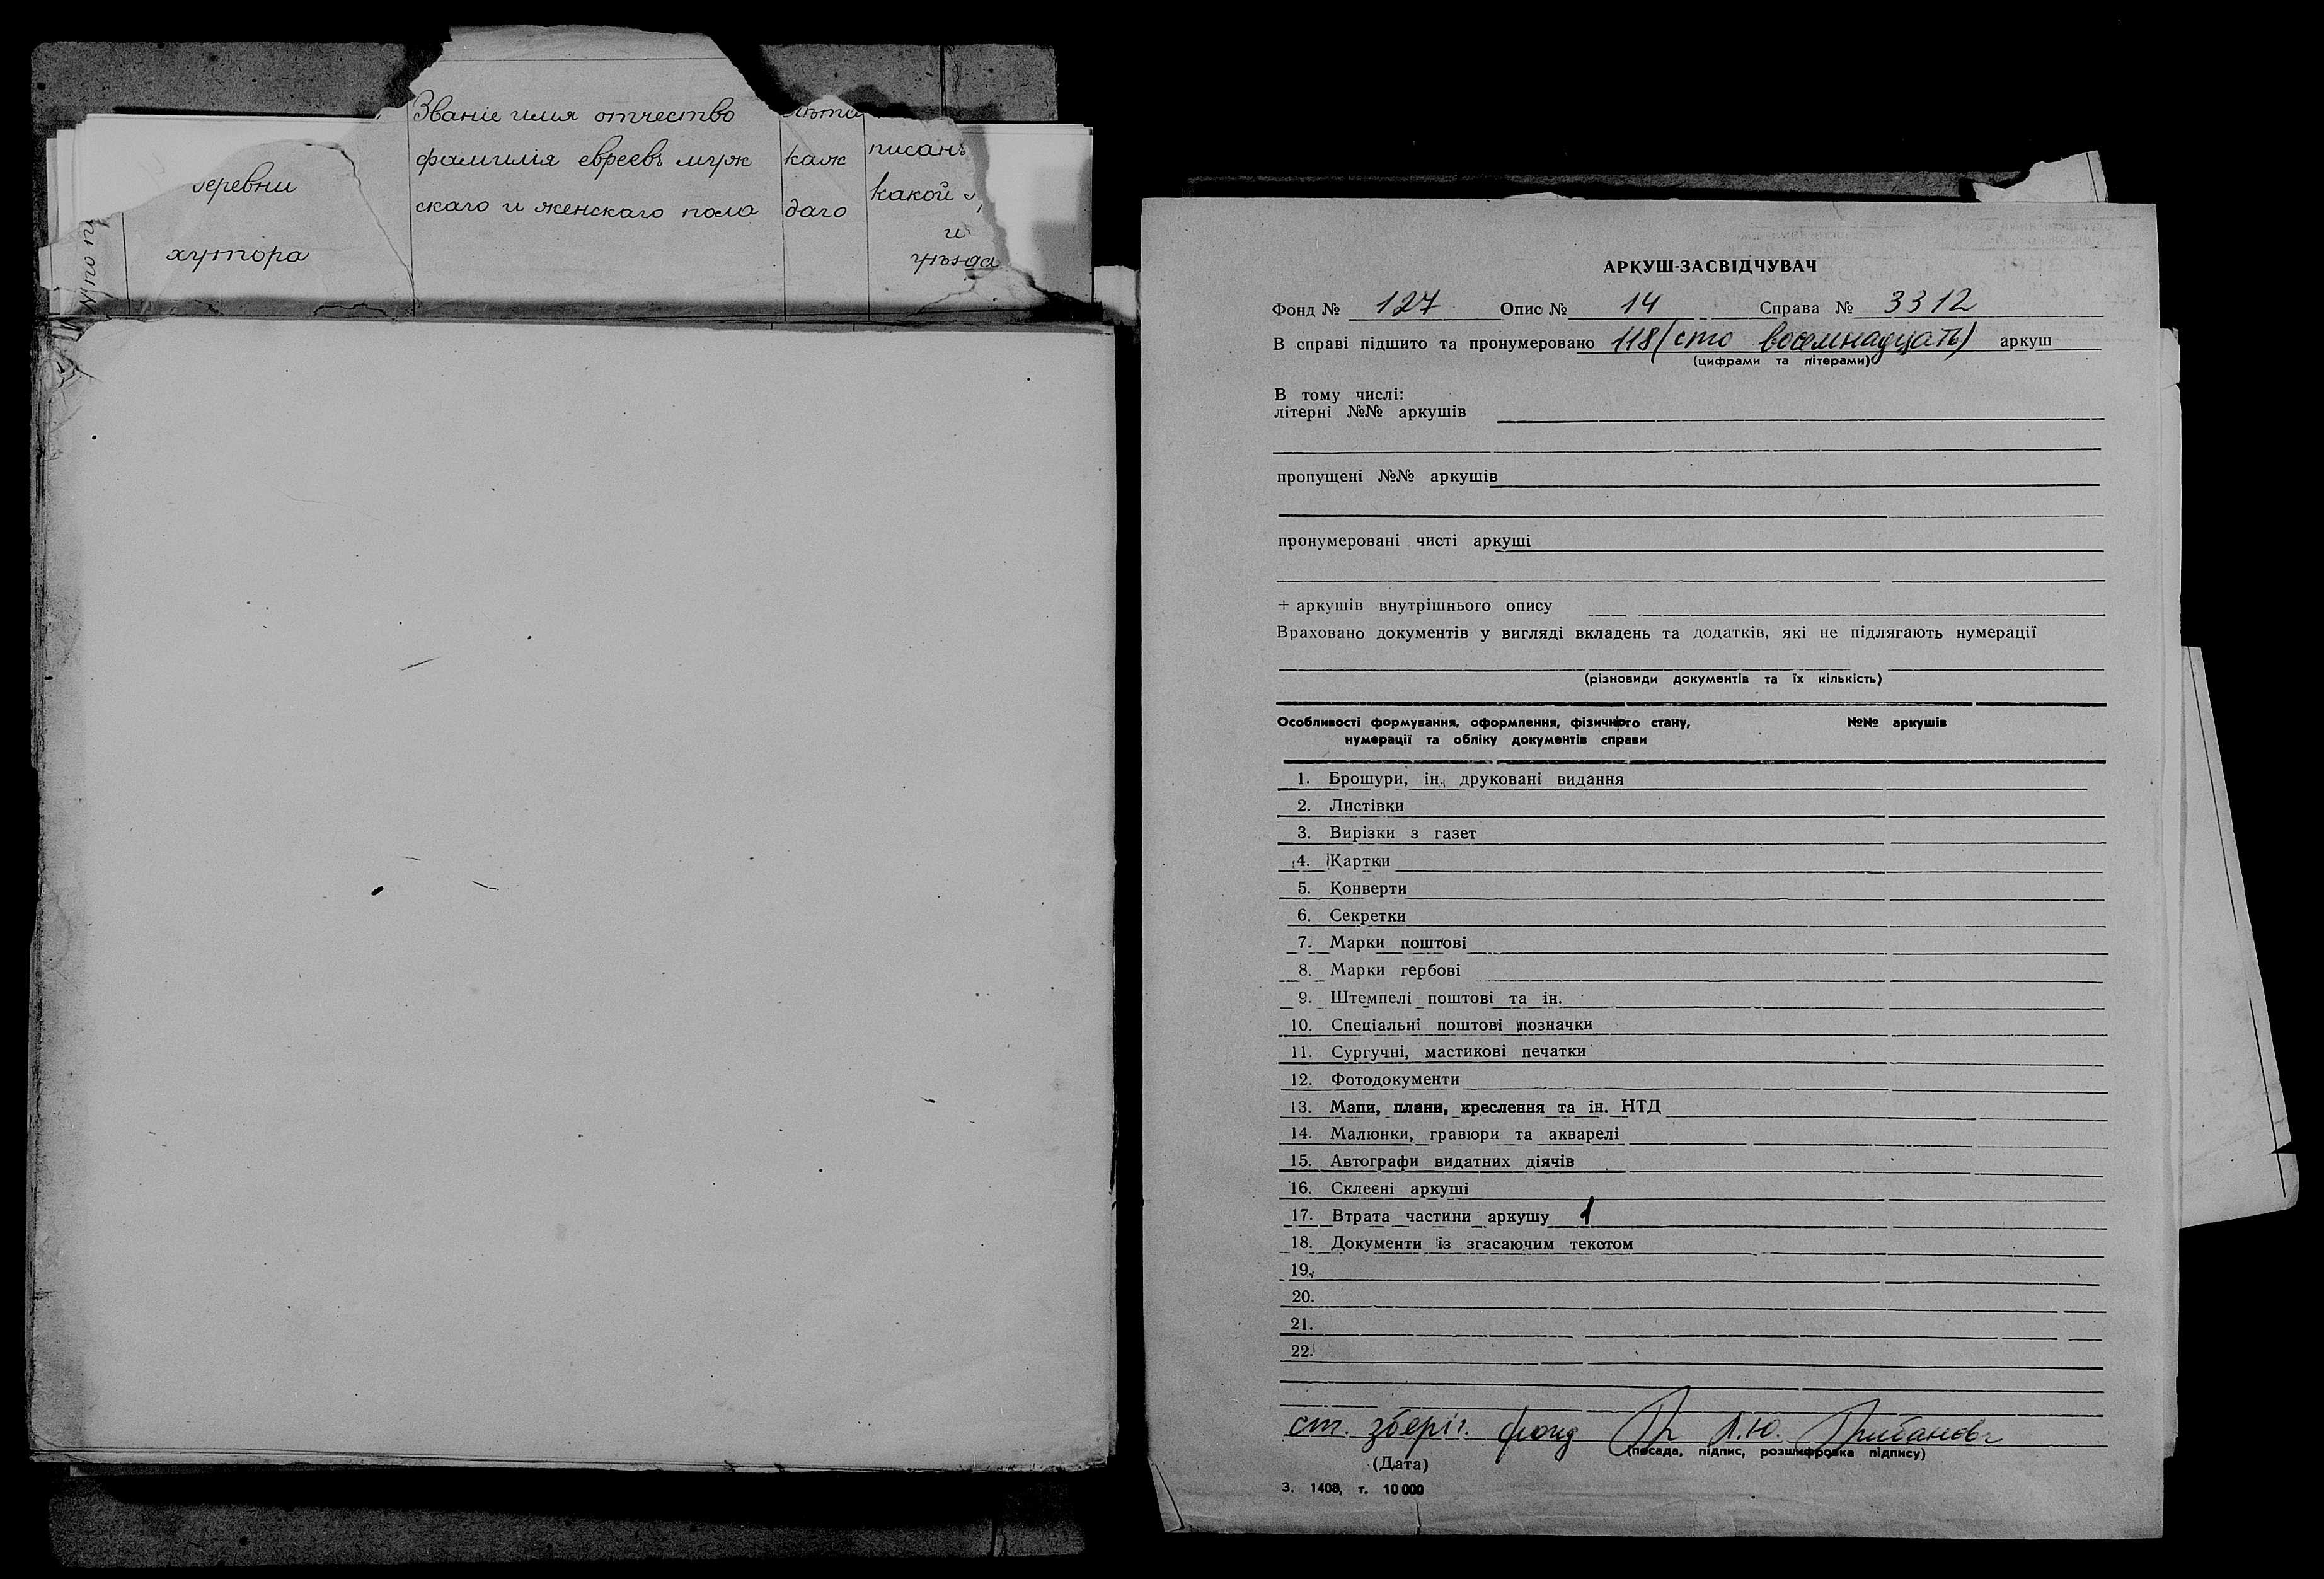 Званіе имя отчество
фамилія евреевъ муж
скаго и женскаго пола
лѣта
каж
даго
писанъ
какой
и
уѣзда
деревни
хутора
№ по
АРКУШ-ЗАСВІДЧУВАЧ
Фонд № 127 Опис № 14 Справа № 3312
В справі підшито та пронумеровано 118 (сто восемнадцать) аркуш
(цифрами та літерами)
В тому числі:
літерні №№ аркушів
пропущені №№ аркушів
пронумеровані чисті аркуші
+ аркушів внутрішнього опису
Враховано документів у вигляді вкладень та додатків, які не підлягають нумерації
(різновиди документів та їх кількість)
Особливості формування, оформлення, фізичного стану, №№ аркушів
нумерації та обліку документів справи
1. Брошури, ін. друковані видання
2. Листівки
3. Вирізки з газет
4. Картки
5. Конверти
6. Секретки
7. Марки поштові
8. Марки гербові
9. Штемпелі поштові та ін.
10. Спеціальні поштові позначки
11. Сургучні, мастикові печатки
12. Фотодокументи
13. Мапи, плани, креслення та ін. НТД
14. Малюнки, гравюри та акварелі
15. Автографи видатних діячів
16. Склеєні аркуші
17. Втрата частини аркушу 1
18. Документи із згасаючим текстом
19.
20.
21.
22.
ст. зберіг. фонд Л.Ю.
(посада, підпис, розшифровка підпису)
(Дата)
З. 1408, т. 10 000